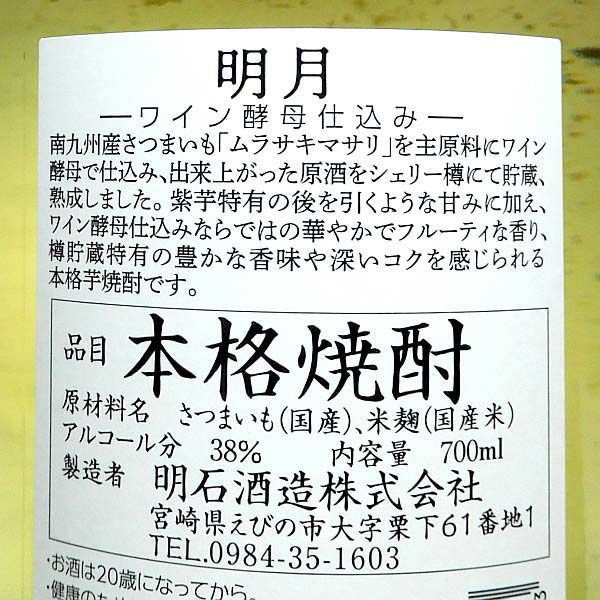 明月
―ワイン酵母仕込み―
南九州産さつまいも「ムラサキマサリ」を主原料にワイン
酵母で仕込み、出来上がった原酒をシェリー樽にて貯蔵、
熟成しました。紫芋特有の後を引くような甘みに加え、
ワイン酵母仕込みならではの華やかでフルーティな香り、
樽貯蔵特有の豊かな香味や深いコクを感じられる
本格芋焼酎です。
品目 本格焼酎
原材料名 さつまいも(国産)、米麹(国産米)
アルコール分 38% 内容量 700ml
製造者 明石酒造株式会社
宮崎県えびの市大字栗下61番地1
TEL.0984-35-1603
・お酒は20歳になってから。
・健康のため